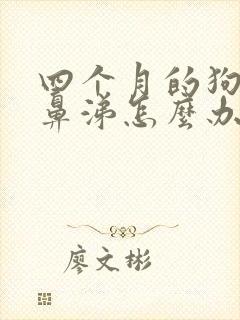 四个月的狗
鼻涕怎麼办
廖文彬